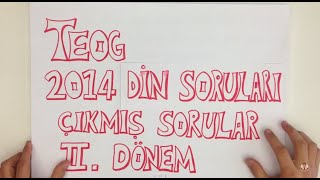 TEOG
2014 DİN SORULARI
ÇIKMIŞ SORULAR
II. DÖNEM